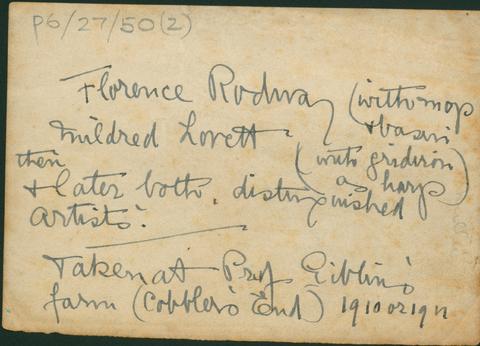 P6/27/50(2)
Florence Rodway (with mop & basin)
Mildred Lovett (with gridiron as harp)
then
& later both, distinguished
artists.
Taken at Prof Giblin's
farm (Cobbler's End) 1910 or 1911